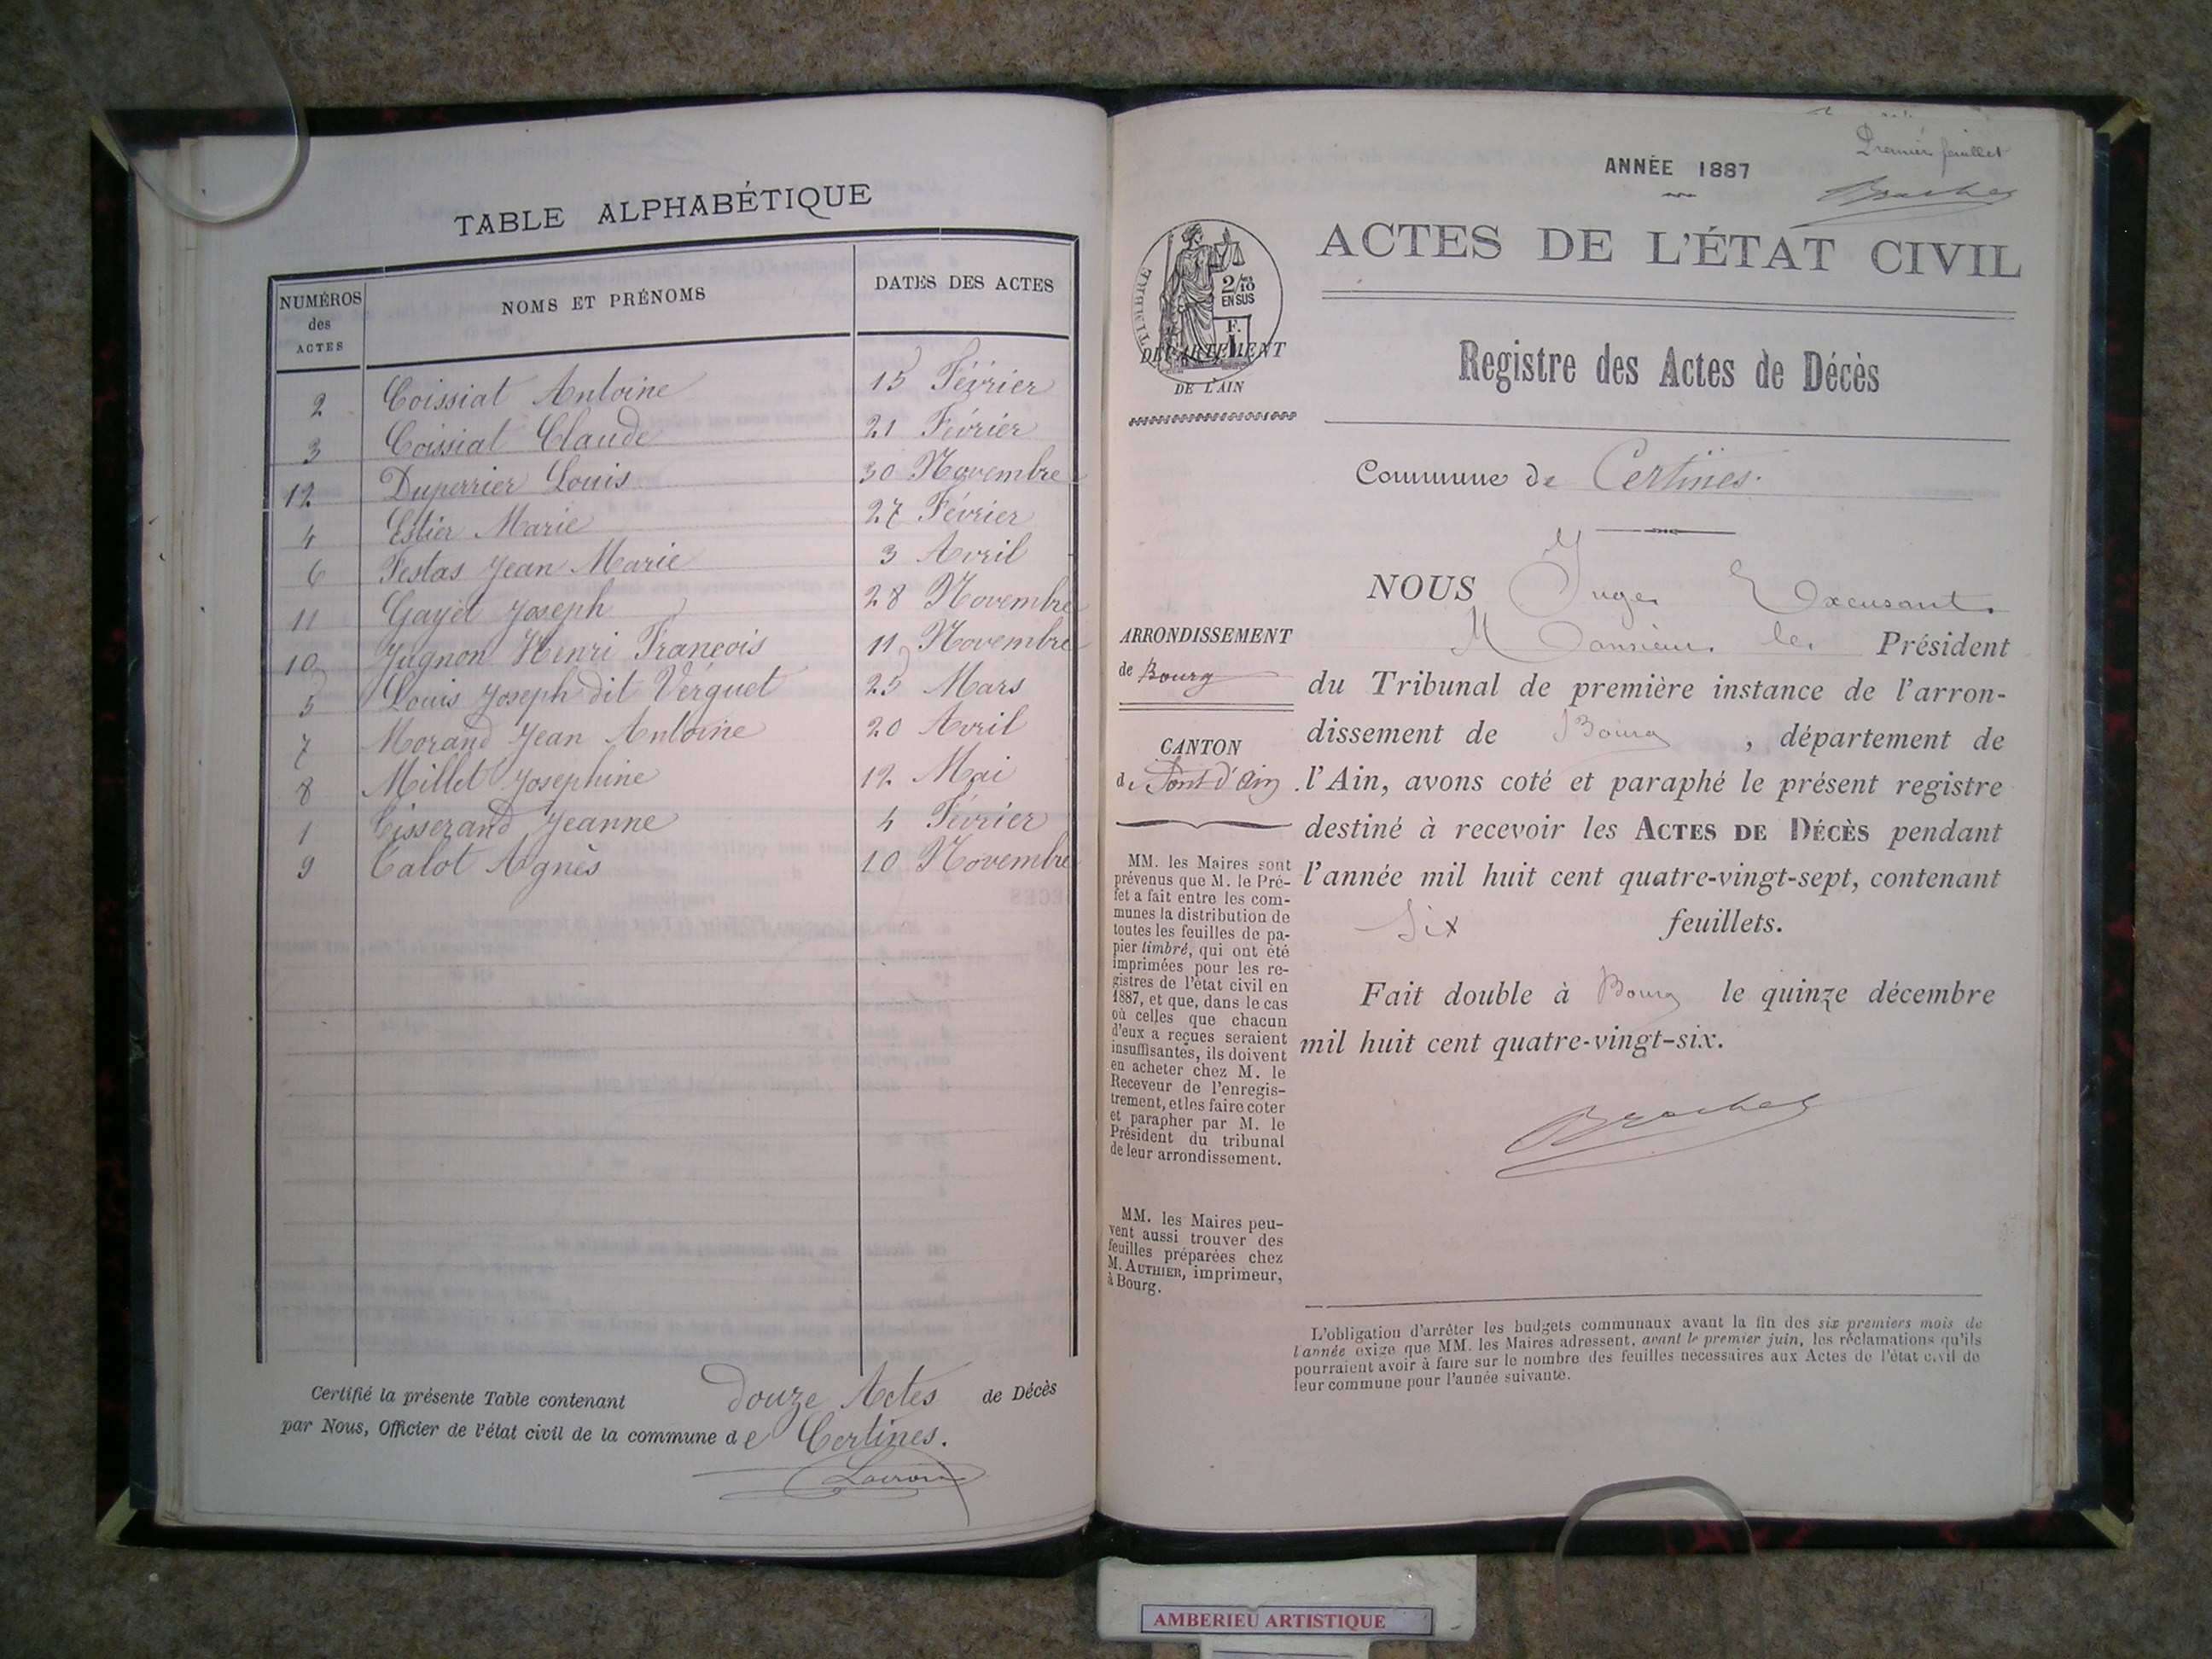 TABLE ALPHABÉTIQUE
NUMÉROS des ACTES
NOMS ET PRÉNOMS
DATES DES ACTES
2 Coissiat Antoine 15 Février
3 Coissiat Claude 21 Février
12 Duperrier Louis 30 Novembre
4 Estier Marie 27 Février
6 Festas Jean Marie 3 Avril
11 Gayet Joseph 28 Novembre
10 Jugnon Henri François 11 Novembre
5 Louis Joseph dit Verguet 25 Mars
7 Morand Jean Antoine 20 Avril
8 Millet Josephine 12 Mai
1 Tisserand Jeanne 4 Février
9 Talot Agnès 10 Novembre
Certifié la présente Table contenant douze Actes de Décès
par Nous, Officier de l'état civil de la commune de Certines.
Premier feuillet
ANNÉE 1887
ACTES DE L'ÉTAT CIVIL
TIMBRE
2/10
EN SUS
F.
DÉPARTEMENT
DE L'AIN
Registre des Actes de Décès
Commune de Certines.
ARRONDISSEMENT
de Bourg
CANTON
de Pont d'Ain
MM. les Maires sont
prévenus que M. le Pré-
fet a fait entre les com-
munes la distribution de
toutes les feuilles de pa-
pier timbré, qui ont été
imprimées pour les re-
gistres de l'état civil en
1887, et que, dans le cas
où celles que chacun
d'eux a reçues seraient
insuffisantes, ils doivent
en acheter chez M. le
Receveur de l'enregis-
trement, et les faire coter
et parapher par M. le
Président du tribunal
de leur arrondissement.
MM. les Maires peu-
vent aussi trouver des
feuilles préparées chez
M. AUTHIER, imprimeur,
à Bourg.
NOUS Juge Excusant
Monsieur le Président
du Tribunal de première instance de l'arron-
dissement de Bourg, département de
l'Ain, avons coté et paraphé le présent registre
destiné à recevoir les ACTES DE DÉCÈS pendant
l'année mil huit cent quatre-vingt-sept, contenant
Six feuillets.
Fait double à Bourg le quinze décembre
mil huit cent quatre-vingt-six.
L'obligation d'arrêter les budgets communaux avant la fin des six premiers mois de
l'année exige que MM. les Maires adressent, avant le premier juin, les réclamations qu'ils
pourraient avoir à faire sur le nombre des feuilles nécessaires aux Actes de l'état civil de
leur commune pour l'année suivante.
AMBERIEU ARTISTIQUE